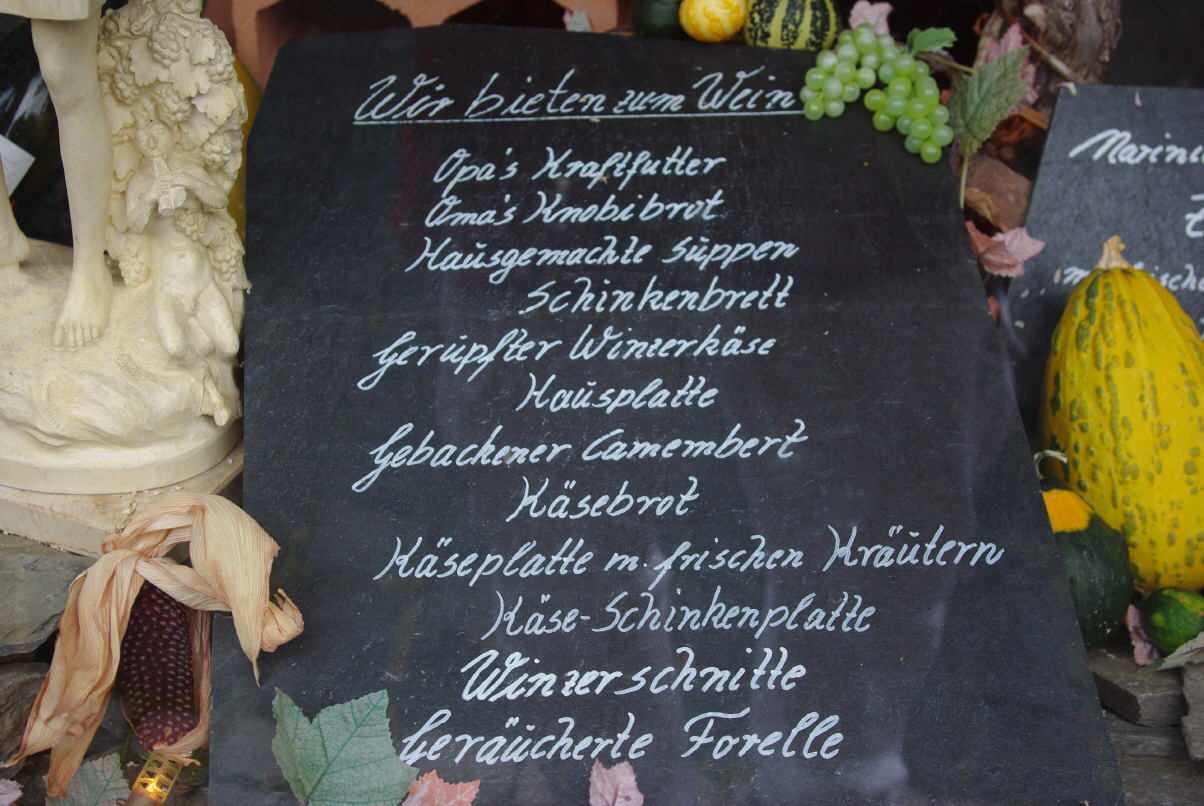 Wir bieten zum Wein
Opa's Kraftfutter
Oma's Knobibrot
Hausgemachte Suppen
Schinkenbrett
Gerupfter Winzerkäse
Hausplatte
Gebackener Camembert
Käsebrot
Käseplatte m. frischen Kräutern
Käse-Schinkenplatte
Winzerschnitte
Geräucherte Forelle
Marin